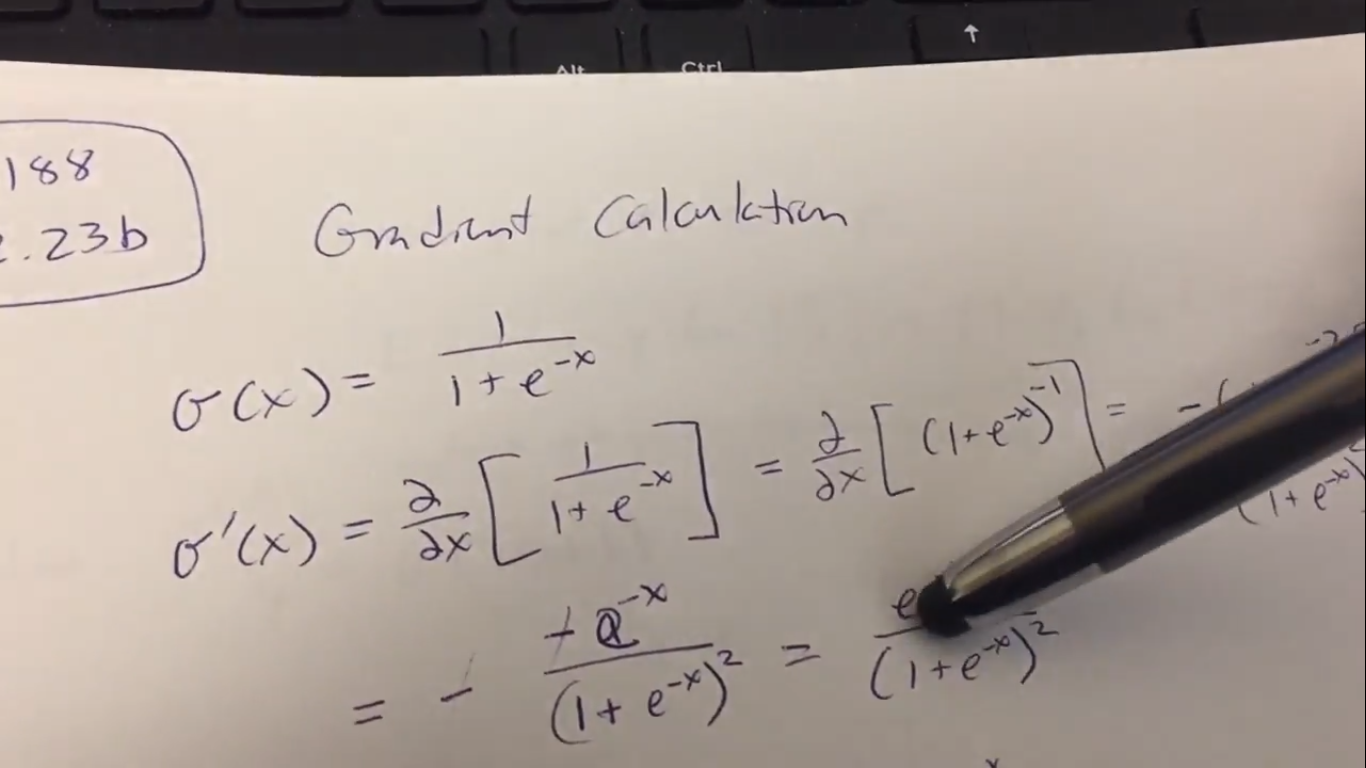 Alt Ctrl ↑
188
.23b
Gradient Calculation
σ(x) = 1/(1 + e^{-x})
σ'(x) = ∂/∂x [ 1/(1 + e^{-x}) ] = ∂/∂x [ (1+e^{-x})^{-1} ] = -( (1+e^{-x})
= - -e^{-x}/(1 + e^{-x})^2 = e/(1+e^{-x})^2